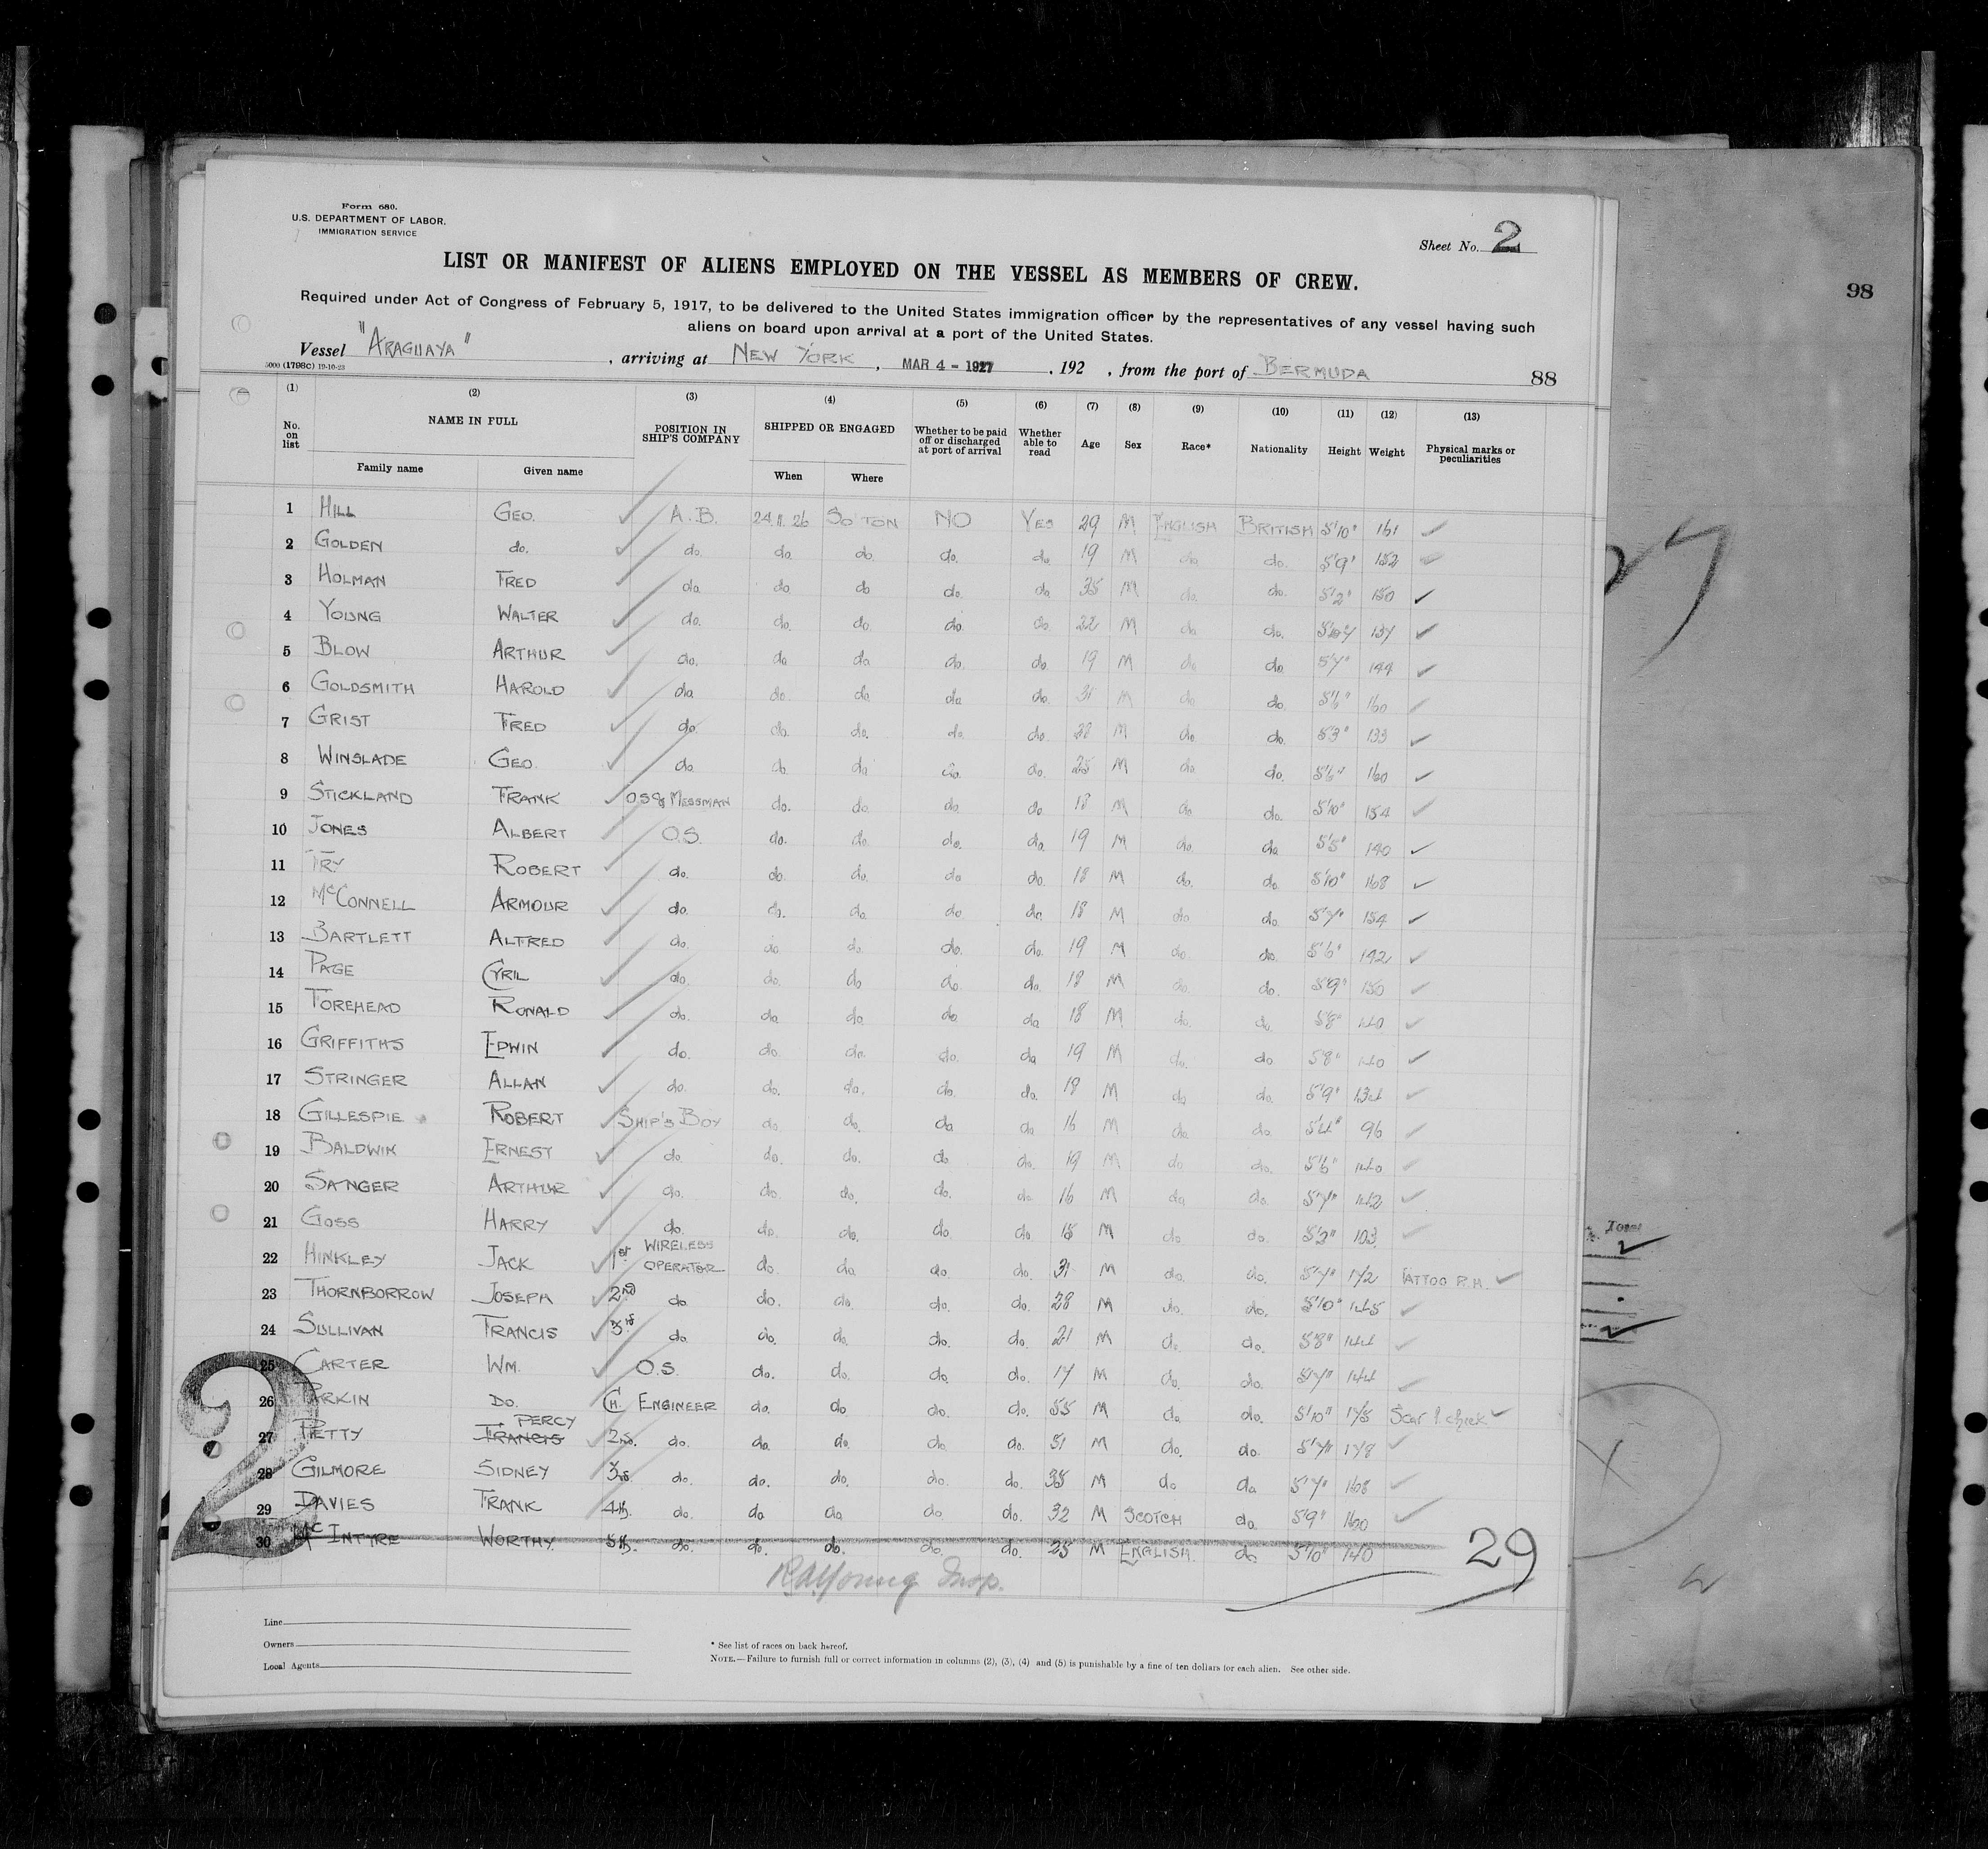 Form 680.
U.S. DEPARTMENT OF LABOR.
IMMIGRATION SERVICE
Sheet No. 2
LIST OR MANIFEST OF ALIENS EMPLOYED ON THE VESSEL AS MEMBERS OF CREW.
98
Required under Act of Congress of February 5, 1917, to be delivered to the United States immigration officer by the representatives of any vessel having such
aliens on board upon arrival at a port of the United States.
Vessel "ARAGUAYA", arriving at NEW YORK, MAR 4 - 1927, 192 , from the port of BERMUDA
5000 (1798C) 19-10-23
88
(1) (2) (3) (4) (5) (6) (7) (8) (9) (10) (11) (12) (13)
No. on list NAME IN FULL POSITION IN SHIP'S COMPANY SHIPPED OR ENGAGED Whether to be paid off or discharged at port of arrival Whether able to read Age Sex Race* Nationality Height Weight Physical marks or peculiarities
Family name Given name When Where
1 HILL GEO. A.B. 24.11.26 SO'TON NO YES 29 M ENGLISH BRITISH 5'10" 161
2 GOLDEN do. do. do. do. do. do. 19 M do. do. 5'9" 152
3 HOLMAN FRED do. do. do. do. do. 35 M do. do. 5'2" 150
4 YOUNG WALTER do. do. do. do. do. 22 M do. do. 137
5 BLOW ARTHUR do. do. do. do. do. 19 M do. do. 5'7" 144
6 GOLDSMITH HAROLD do. do. do. do. do. 31 M do. do. 5'6" 160
7 GRIST FRED do. do. do. do. do. 28 M do. do. 5'3" 133
8 WINSLADE GEO. do. do. do. do. do. 25 M do. do. 5'6" 160
9 STICKLAND FRANK OS & MESSMAN do. do. do. do. 18 M do. do. 5'10" 154
10 JONES ALBERT O.S. do. do. do. do. 19 M do. do. 5'5" 140
11 FRY ROBERT do. do. do. do. do. 18 M do. do. 5'10" 168
12 McCONNELL ARMOUR do. do. do. do. do. 18 M do. do. 5'7" 154
13 BARTLETT ALFRED do. do. do. do. do. 19 M do. do. 5'6" 142
14 PAGE CYRIL do. do. do. do. do. 18 M do. do. 5'9" 150
15 FOREHEAD RONALD do. do. do. do. do. 18 M do. do. 5'8" 140
16 GRIFFITHS EDWIN do. do. do. do. do. 19 M do. do. 5'8" 140
17 STRINGER ALLAN do. do. do. do. do. 18 M do. do. 5'9" 134
18 GILLESPIE ROBERT SHIP'S BOY do. do. do. do. 16 M do. do. 5'4" 96
19 BALDWIN ERNEST do. do. do. do. do. 19 M do. do. 5'6" 140
20 SANGER ARTHUR do. do. do. do. do. 16 M do. do. 5'7" 142
21 GOSS HARRY do. do. do. do. do. 18 M do. do. 5'2" 103
22 HINKLEY JACK 1st WIRELESS OPERATOR do. do. do. do. 31 M do. do. 5'7" 172 TATTOO R.H.
23 THORNBORROW JOSEPH 2ND do. do. do. do. do. 28 M do. do. 5'10" 145
24 SULLIVAN FRANCIS 3rd do. do. do. do. do. 21 M do. do. 5'8" 144
25 CARTER WM. O.S. do. do. do. do. 17 M do. do. 5'7" 144
26 PARKIN DO. CH. ENGINEER do. do. do. do. 55 M do. do. 5'10" 175 Scar l cheek
27 PETTY FRANCIS PERCY 2nd. do. do. do. do. do. 51 M do. do. 5'7" 178
28 GILMORE SIDNEY 3rd. do. do. do. do. do. 35 M do. do. 5'7" 168
29 DAVIES FRANK 4th. do. do. do. do. do. 32 M SCOTCH do. 5'9" 160
30 McINTYRE WORTHY 5th. do. do. do. do. do. 25 M ENGLISH. do. 5'10" 140
29
2
Line
Owners
Local Agents
* See list of races on back hereof.
NOTE.—Failure to furnish full or correct information in columns (2), (3), (4) and (5) is punishable by a fine of ten dollars for each alien. See other side.